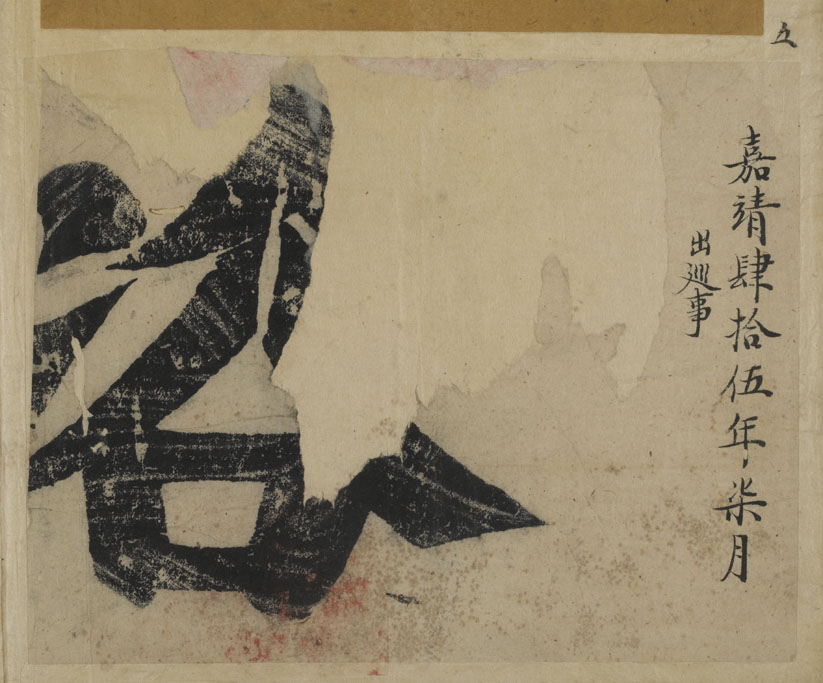 五
嘉靖肆拾伍年柒月
出巡事